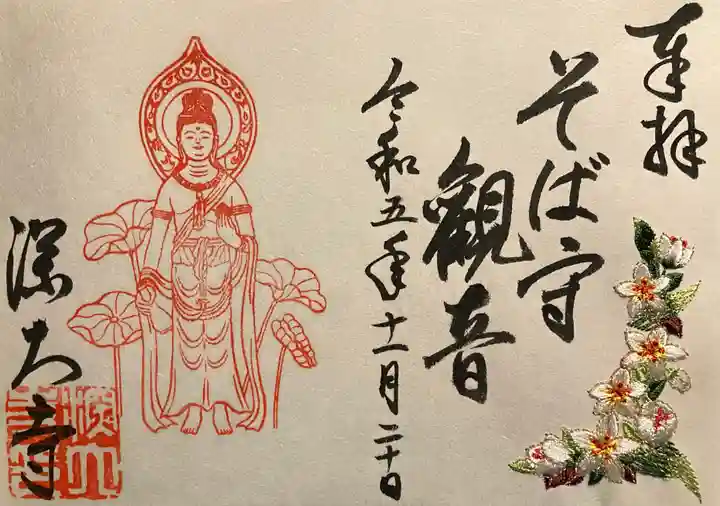 奉拝
そば守
觀音
令和五年十一月二十日
深大寺